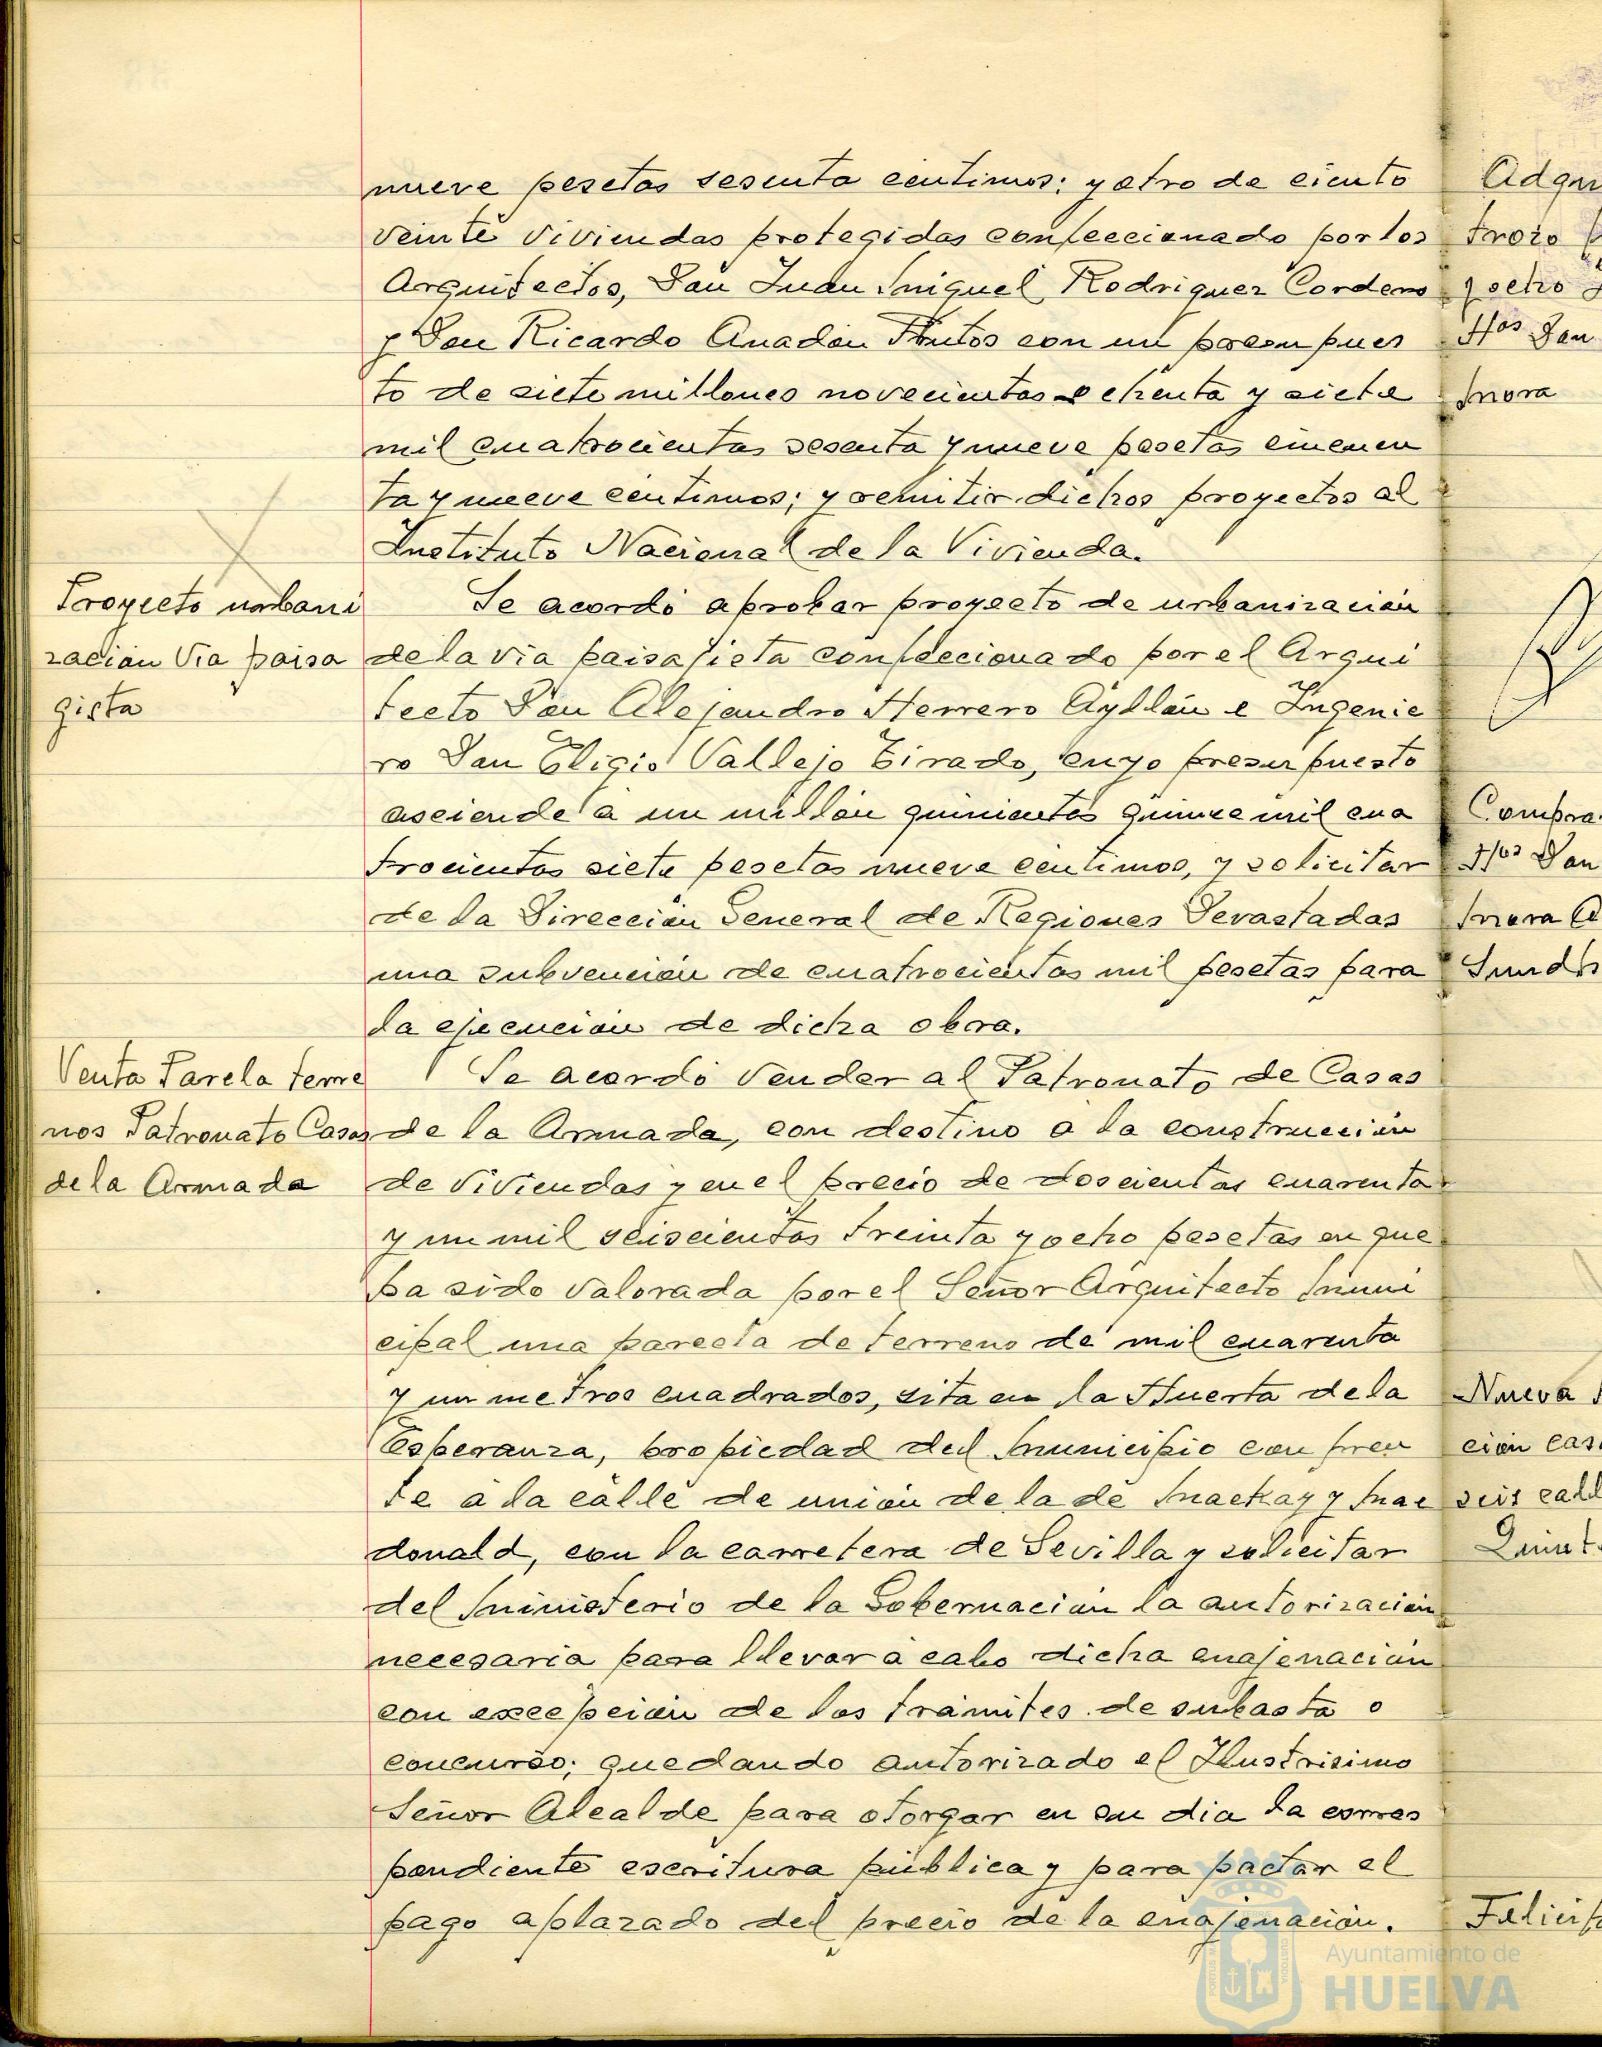 nueve pesetas sesenta centimos; y otro de ciento
veinte viviendas protegidas confeccionado por los
Arquitectos, Don Juan Miguel Rodriguez Cordero
y Don Ricardo Anadón Frutos con un presupues
to de siete millones novecientas ochenta y siete
mil cuatrocientas sesenta y nueve pesetas cincuen
ta y nueve centimos; y remitir dichos proyectos al
Instituto Nacional de la Vivienda.
Proyecto urbani
zación Via paisa
gista
Se acordó aprobar proyecto de urbanización
de la via paisajista confeccionado por el Arqui
tecto Don Alejandro Herrero Ayllón e Ingenie
ro Don Eligio Vallejo Tirado, cuyo presupuesto
asciende a un millón quinientas quince mil cua
trocientas siete pesetas nueve centimos, y solicitar
de la Dirección General de Regiones Devastadas
una subvención de cuatrocientas mil pesetas para
la ejecución de dicha obra.
Venta Parela terre
nos Patronato Casas
de la Armada
Se acordó vender al Patronato de Casas
de la Armada, con destino a la construcción
de viviendas y en el precio de doscientas cuarenta
y un mil seiscientas treinta y ocho pesetas en que
ha sido valorada por el Señor Arquitecto Muni
cipal una parcela de terreno de mil cuarenta
y un metros cuadrados, sita en la Huerta de la
Esperanza, propiedad del Municipio con fren
te a la calle de unión de la de Mackay y Mac
donald, con la carretera de Sevilla y solicitar
del Ministerio de la Gobernación la autorización
necesaria para llevar a cabo dicha enajenación
con excepción de los trámites de subasta o
concurso; quedando autorizado el Ilustrisimo
Señor Alcalde para otorgar en su dia la corres
pondiente escritura pública y para pactar el
pago aplazado del precio de la enajenación.
Adqu
trozo
y ocho
Hos Don
Mora
Compra
Hos Don
Mora
Nueva
ción cas
seis call
Quint
Felicit
Ayuntamiento de
HUELVA